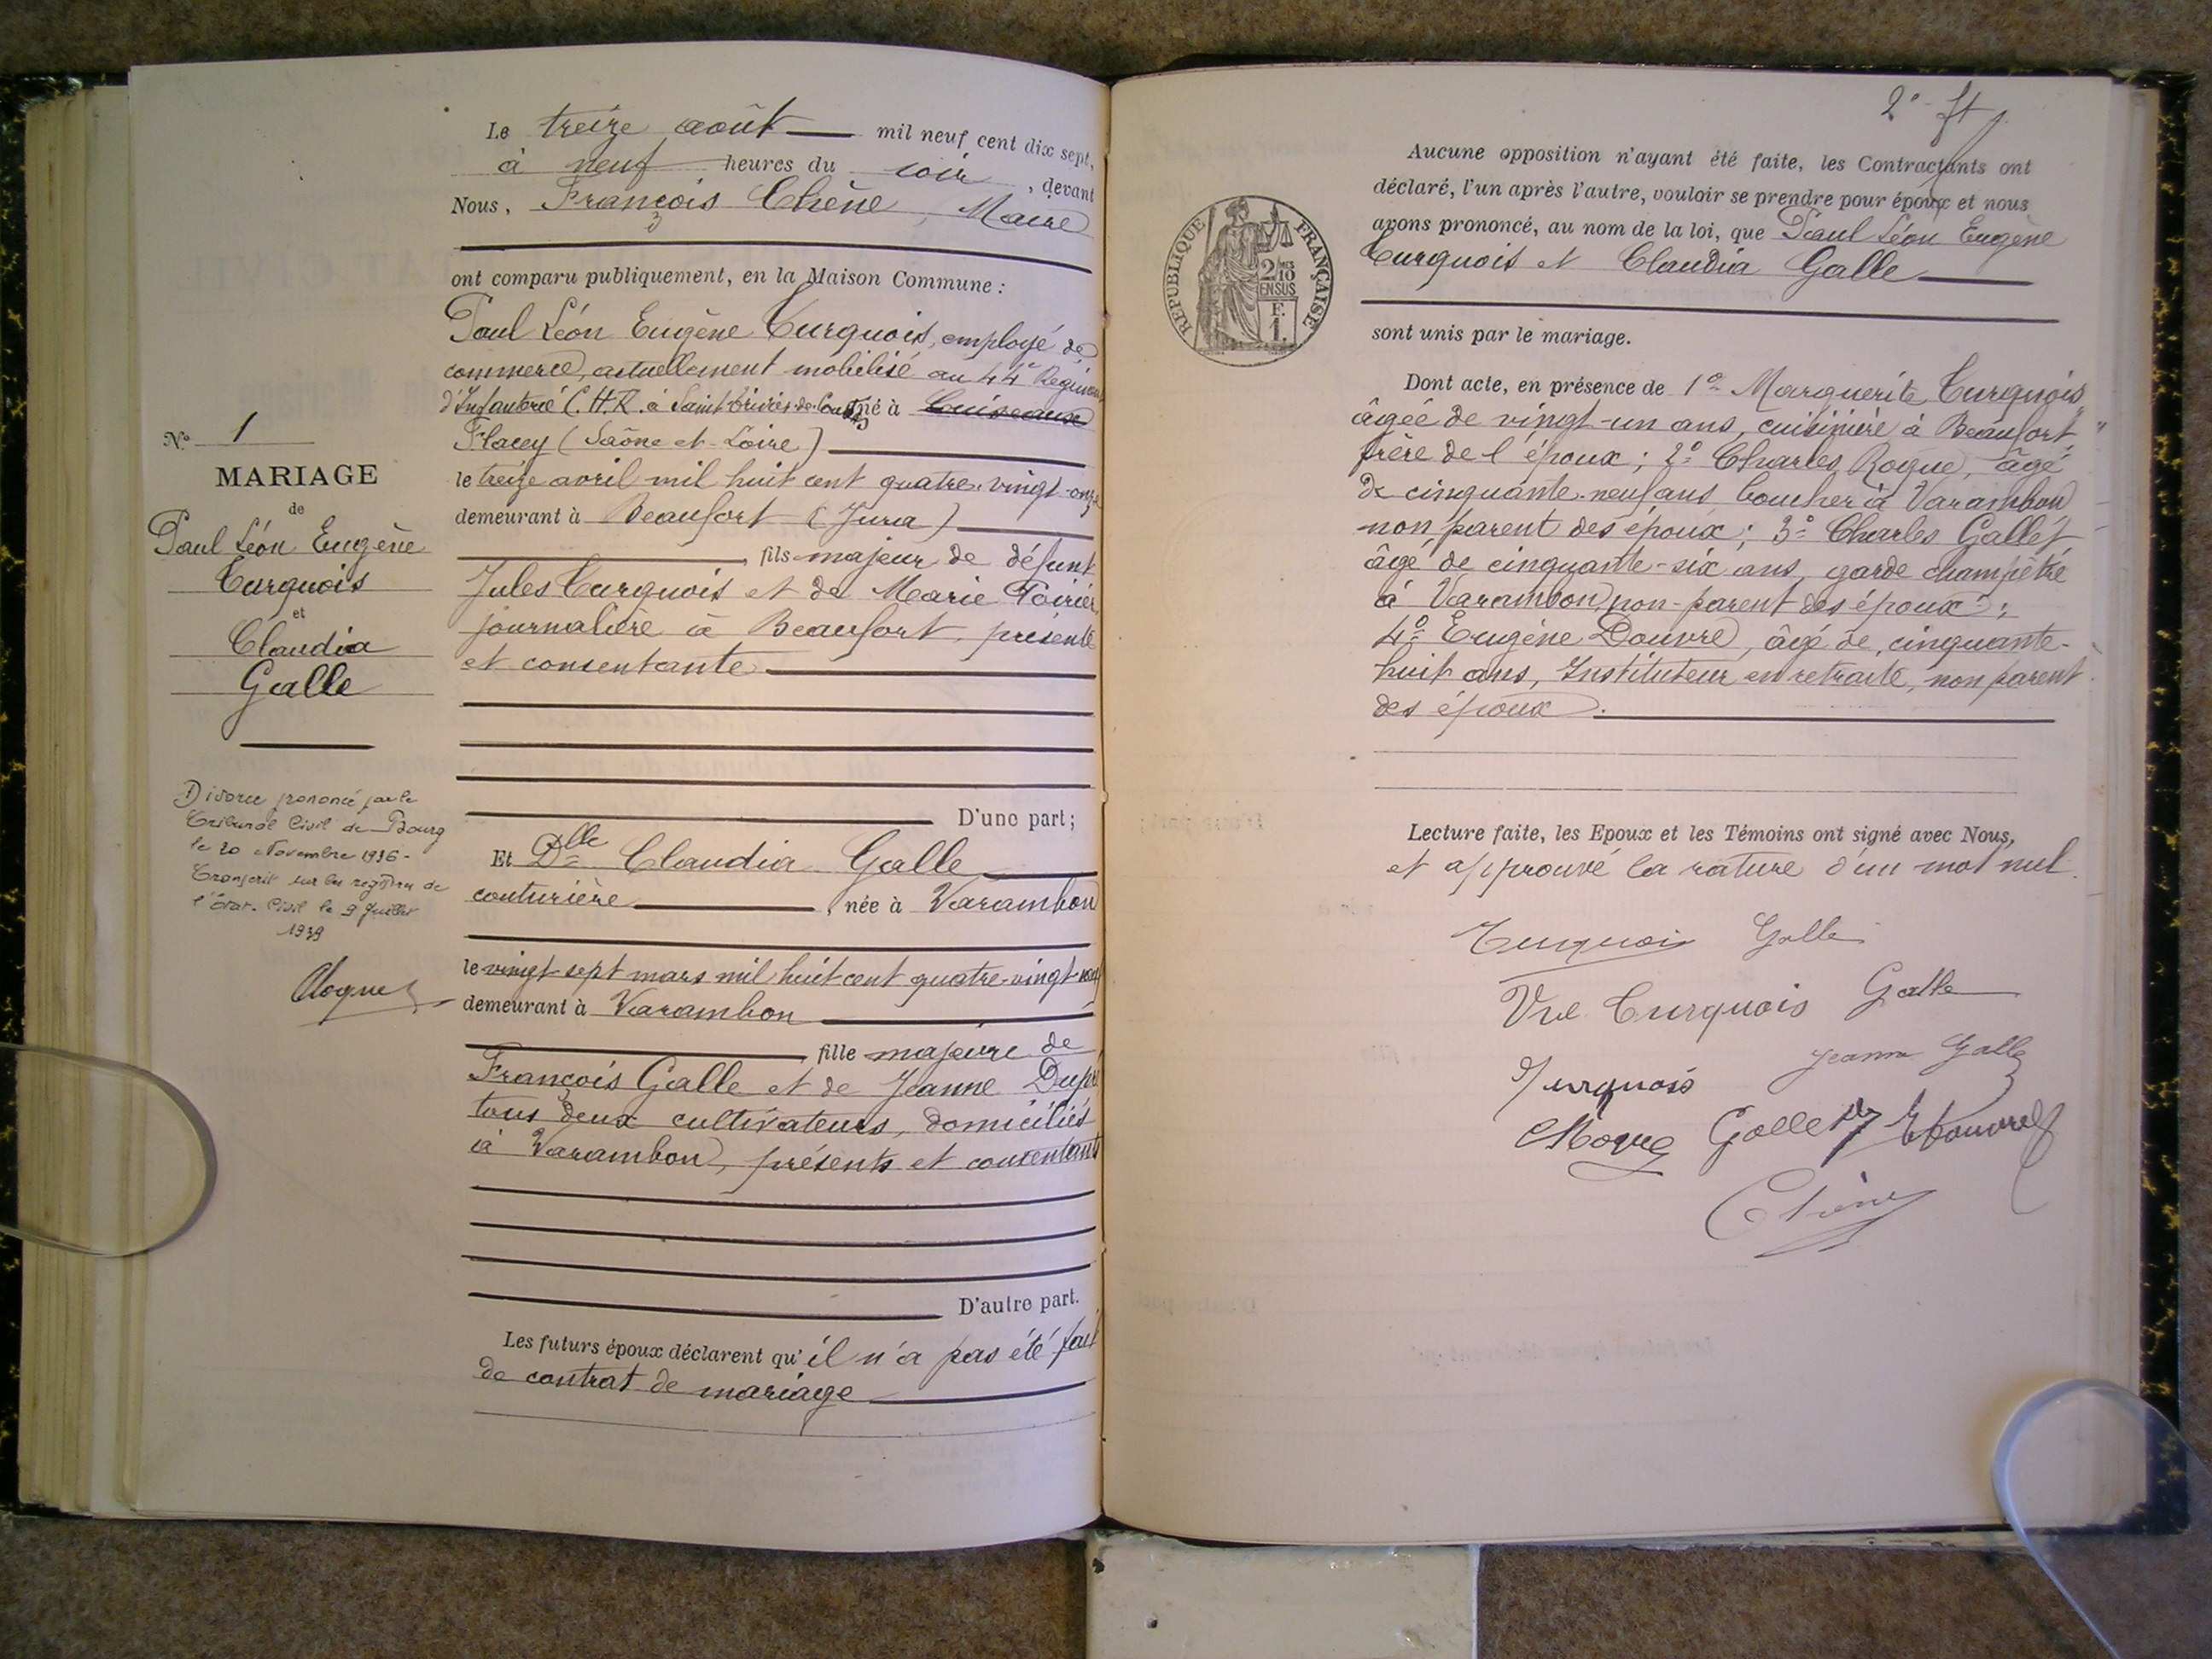 N° 1
MARIAGE
de
Paul Léon Eugène
Turquois
et
Claudia
Galle
Divorce prononcé par le
Tribunal Civil de Bourg
le 20 Novembre 1936 -
Transcrit sur les registres de
l'état-Civil le 9 Juillet
1939
Le treize août mil neuf cent dix sept,
à neuf heures du soir, devant
Nous, François Chêne, Maire
ont comparu publiquement, en la Maison Commune :
Paul Léon Eugène Turquois, employé de
commerce, actuellement mobilisé au 44e Régiment
d'Infanterie C.H.R. à Saint né à Cuiseaux
Flacey (Saône-et-Loire)
le treize avril mil huit cent quatre-vingt-onze
demeurant à Beaufort (Jura)
fils majeur de défunt
Jules Turquois et de Marie Poirier,
journalière à Beaufort, présente
et consentante
D'une part;
Et Dlle Claudia Galle
couturière, née à Varambon
le vingt-sept mars mil huit cent quatre-vingt
demeurant à Varambon
fille majeure de
François Galle et de Jeanne
tous deux cultivateurs, domiciliés
à Varambon, présents et consentants
D'autre part.
Les futurs époux déclarent qu'il n'a pas été fait
de contrat de mariage
2e ft
RÉPUBLIQUE FRANÇAISE
2/10
EN SUS
F.
1.
Aucune opposition n'ayant été faite, les Contractants ont
déclaré, l'un après l'autre, vouloir se prendre pour époux et nous
avons prononcé, au nom de la loi, que Paul Léon Eugène
Turquois et Claudia Galle
sont unis par le mariage.
Dont acte, en présence de 1° Marguerite Turquois,
âgée de vingt-un ans, cuisinière à Beaufort,
frère de l'époux ; 2° Charles Rogue, âgé
de cinquante-neuf ans boucher à Varambon
non parent des époux ; 3° Charles Gallet
âgé de cinquante-six ans, garde champêtre
à Varambon, non-parent des époux ;
4° Eugène Douvre, âgé de cinquante-
huit ans, Instituteur en retraite, non parent
des époux.
Lecture faite, les Epoux et les Témoins ont signé avec Nous,
et approuvé la rature d'un mot nul.
Turquois Galle
Vve Turquois Galle
Turquois Jeanne Galle
Gallet EDouvre
Chêne